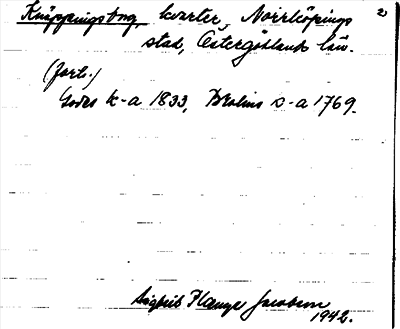 Knäppingsborg, kvarter, Norrköpings 2
stad, Östergötlands län.
(forts.)
k-a 1833, Brolins s-a 1769.
Sigfrid Plauge Jacobson
1942.